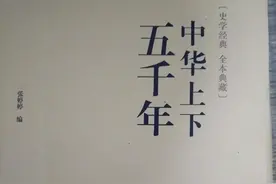 〔史学经典 全本典藏〕
中华上下
五千年
张婷婷 编